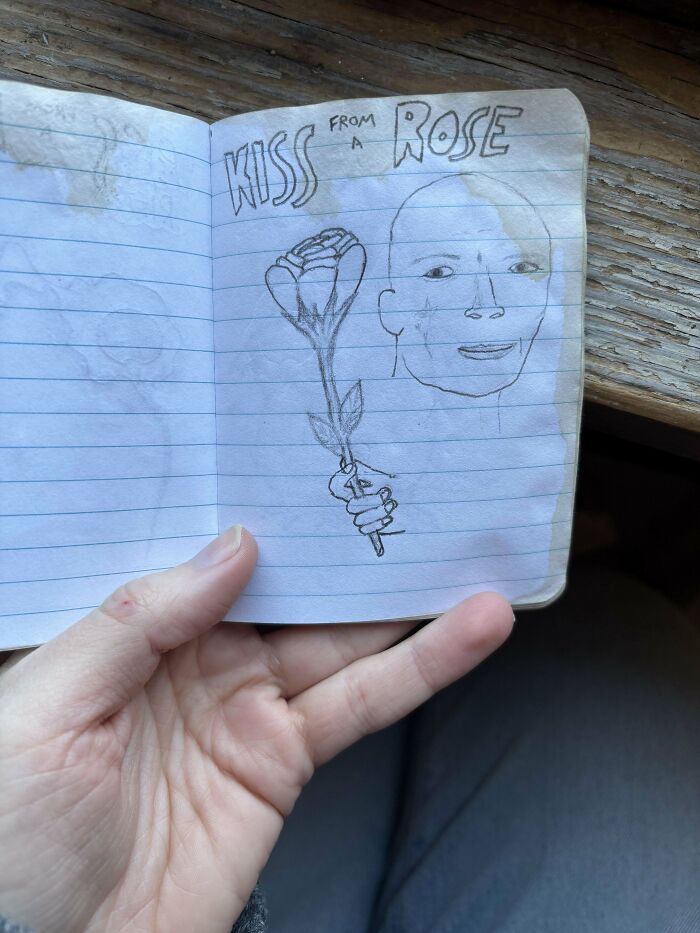 KISS FROM A ROSE